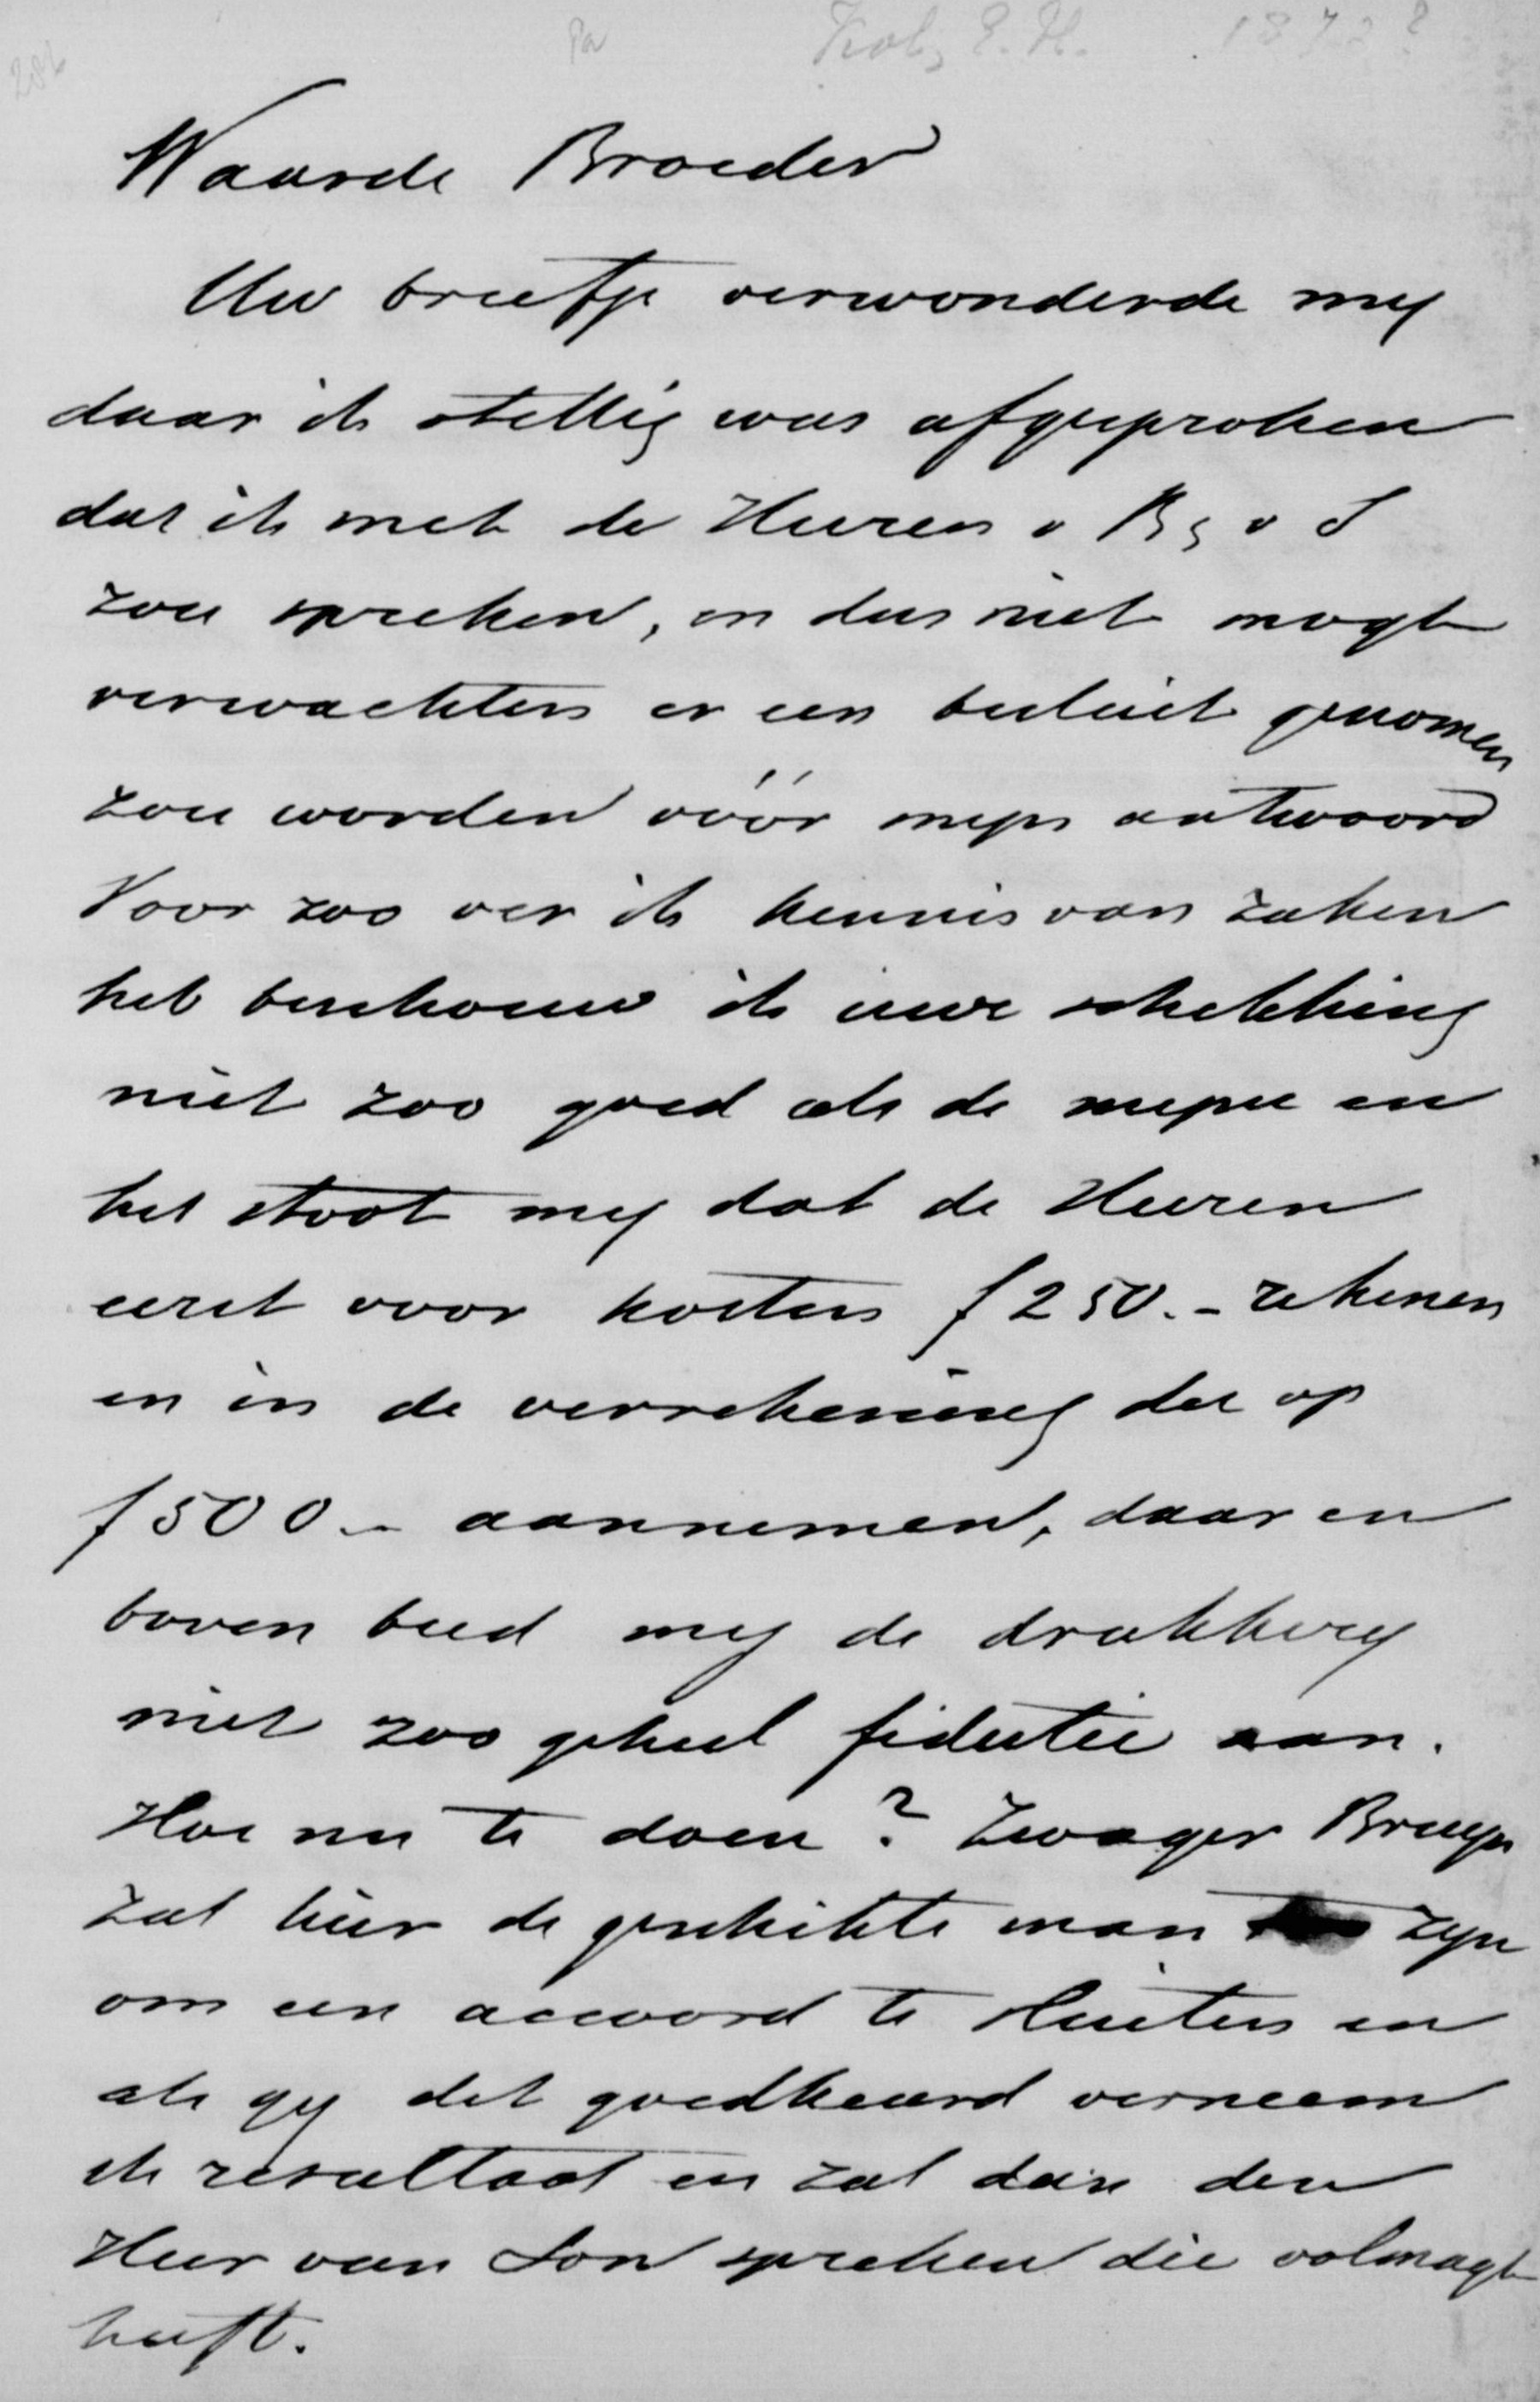 Kol, E. H. 1872?
Waarde Broeder
Uw briefje verwonderde mij
daar ik stellig was afgesproken
dat ik met de Heeren v B & v S
zou spreken, en dus niet mogt
verwachten er een besluit genomen
zou worden vóór mijn antwoord
Voor zoo ver ik kennis van zaken
heb beschouw ik uwe schikking
niet zoo goed als de mijne en
het stoot mij dat de Heeren
eerst voor kosten f 250.- rekenen
en in de verrekening die op
f 500.- aannemen, daar en
boven bied mij de drukkerij
niet zoo geheel fidutie aan.
Hoe nu te doen? Zwager Bruijn
zal hier de geschikte man zijn
om een accoord te sluiten en
als gij dit goedkeurd verneem
ik resultaat en zal dan den
Heer van Son spreken die volmagt
heeft.